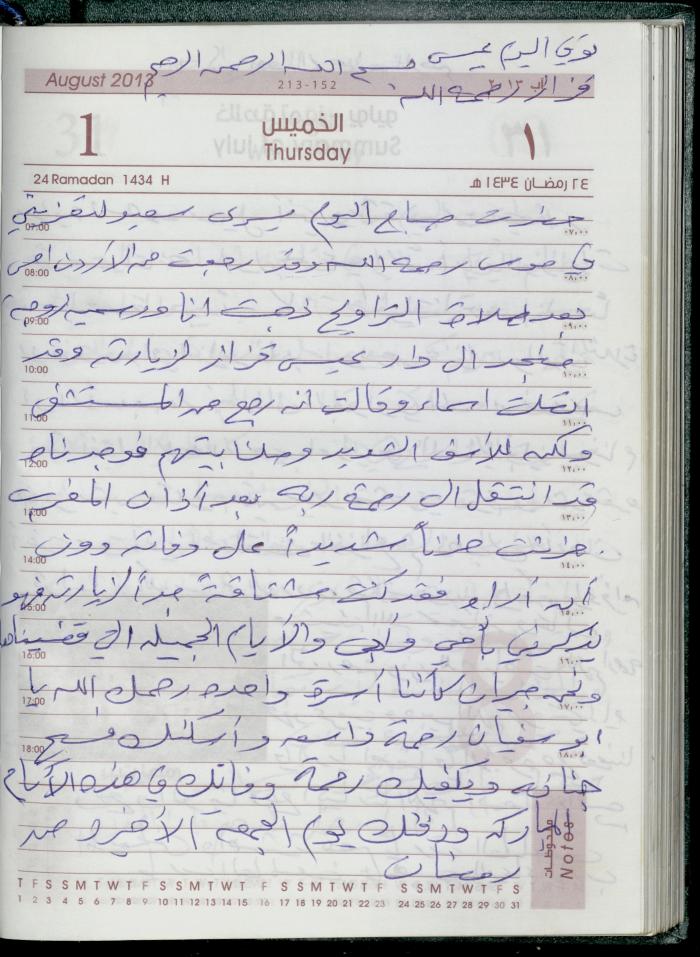 توفي اليوم عيسى
بسم الله الرحمن الرحيم
قزاز رحمه الله
August 2013
213-152
آب ٢٠١٣
1
الخميس
Thursday
١
24 Ramadan 1434 H
٢٤ رمضان ١٤٣٤ هـ
حضرت صباح اليوم يسرى سعيد لتعزيتي
07:00 ٠٧,٠٠
في موسى رحمه الله وقد رجعت من الأردن أمس
08:00 ٠٨,٠٠
بعد صلاة التراويح ذهبت انا وسميه زوجه
09:00 ٠٩,٠٠
منجد الى دار عيسى قزاز لزيارته وقد
10:00 ١٠,٠٠
اتصلت اسماء وقالت انه رجع من المستشفى
11:00 ١١,٠٠
ولكن للأسف الشديد وصلنا بيتهم فوجدناه
12:00 ١٢,٠٠
قد انتقل الى رحمة ربه بعد أذان المغرب
13:00 ١٣,٠٠
حزنت حزناً شديداً على وفاته دون
14:00 ١٤,٠٠
أن أراه فقد كنت مشتاقة جداً لزيارته فهو
15:00 ١٥,٠٠
يذكرني بأمي وأبي والأيام الجميله التي قضيناها
16:00 ١٦,٠٠
ونحن جيران كأننا أسرة واحده رحمك الله يا
17:00 ١٧,٠٠
ابو سفيان رحمة واسعه وأسكنك فسيح
18:00 ١٨,٠٠
جنانه ويكفيك رحمة وفاتك في هذه الأيام
مباركه ودفنك يوم الجمعة الأخيره من
رمضان
ملاحظات
Notes
T F S S M T W T F S S M T W T F S S M T W T F S S M T W T F S
1 2 3 4 5 6 7 8 9 10 11 12 13 14 15 16 17 18 19 20 21 22 23 24 25 26 27 28 29 30 31